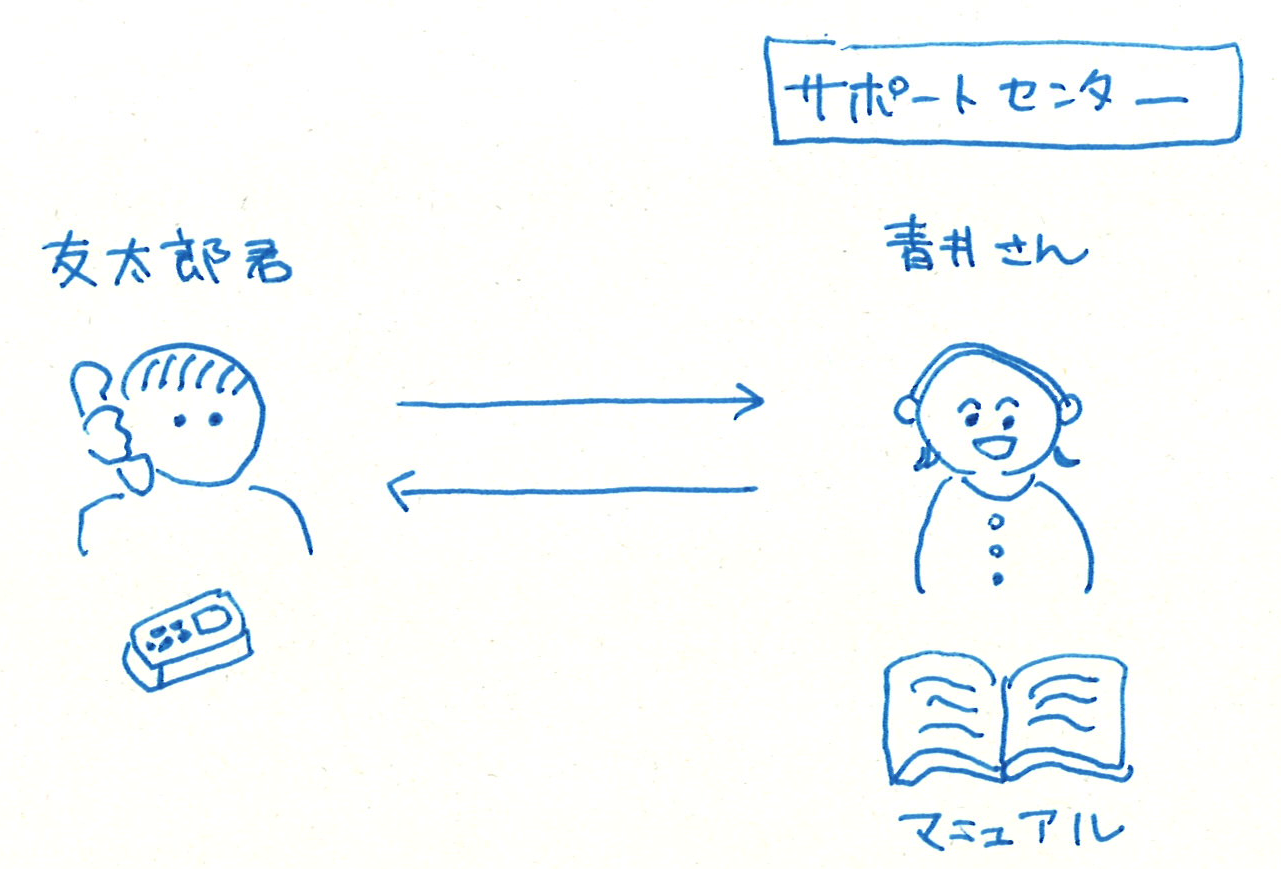 サポートセンター
友太郎君
青井さん
マニュアル